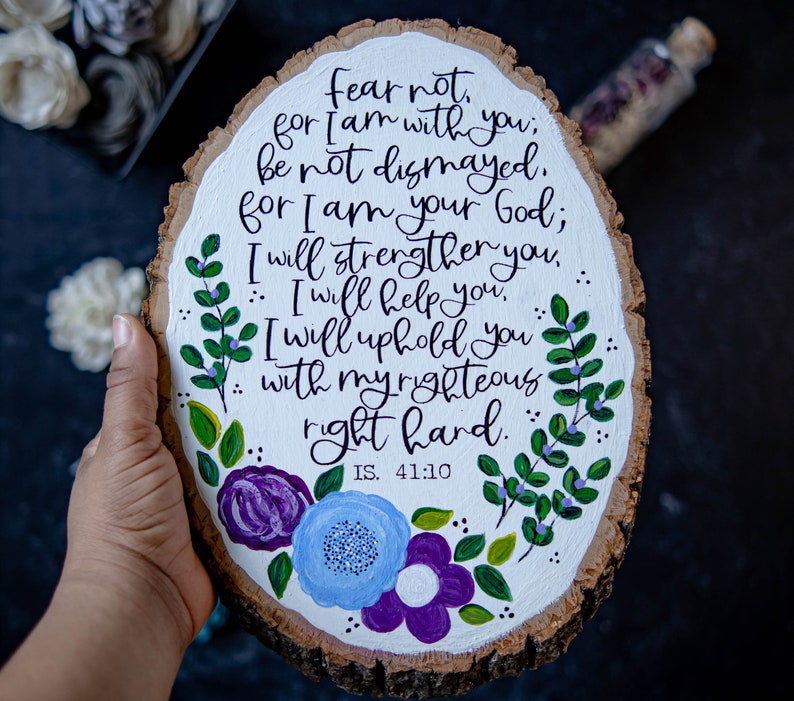 Fear not,
for I am with you;
be not dismayed,
for I am your God;
I will strengthen you,
I will help you,
I will uphold you
with my righteous
right hand.
IS. 41:10